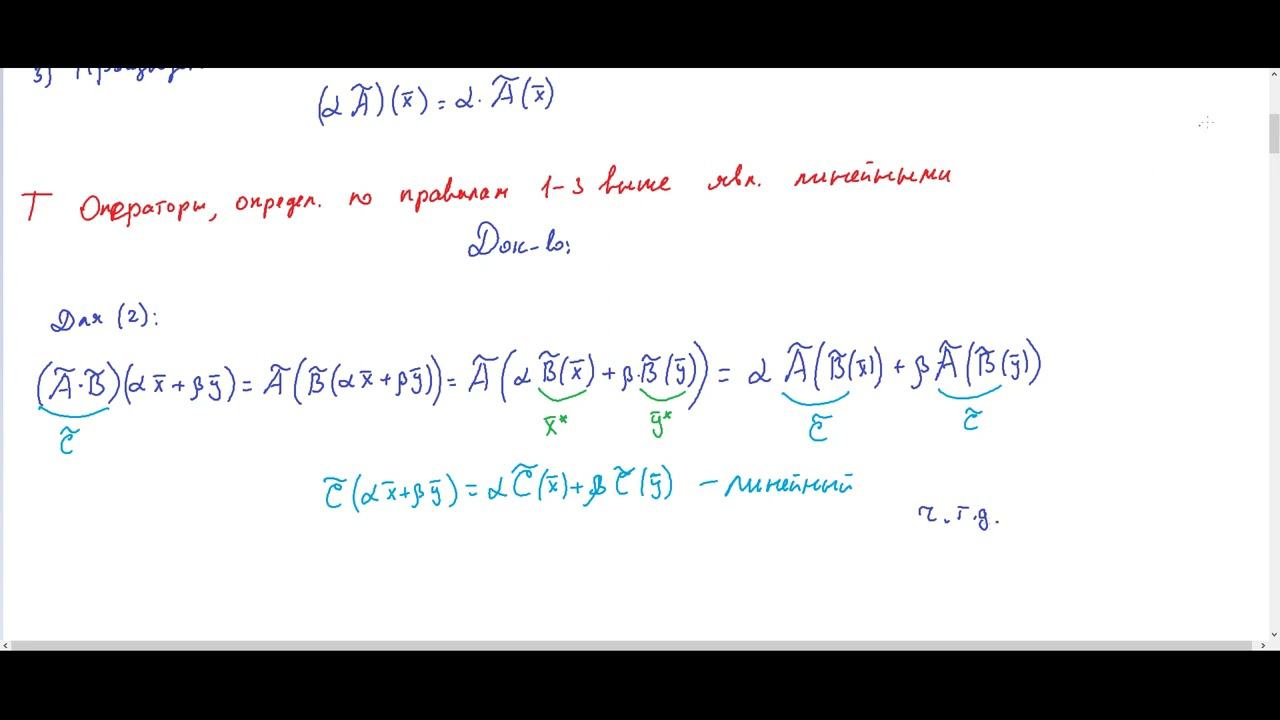 3)
(α Ã)(x̄) = α · Ã(x̄)
T Операторы, определ. по правилам 1-3 выше явл. линейными
Док-во:
Для (2):
(Ã·B̃)(αx̄+βȳ) = Ã(B̃(αx̄+βȳ)) = Ã(α B̃(x̄) + β·B̃(ȳ)) = α Ã(B̃(x̄)) + β Ã(B̃(ȳ))
C̃ x̄* ȳ* C̃ C̃
C̃(αx̄+βȳ) = αC̃(x̄)+βC̃(ȳ) – линейный
ч.т.д.